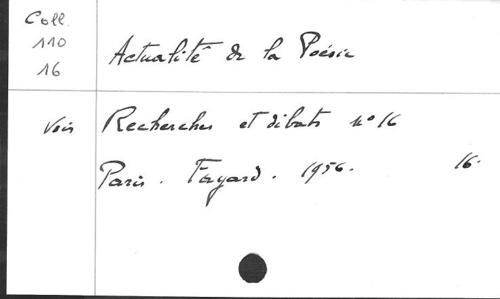 Coll.
110
16
Actualité de la Poésie
Voir Recherches et débats n° 16
Paris. Fayard. 1956. 16.